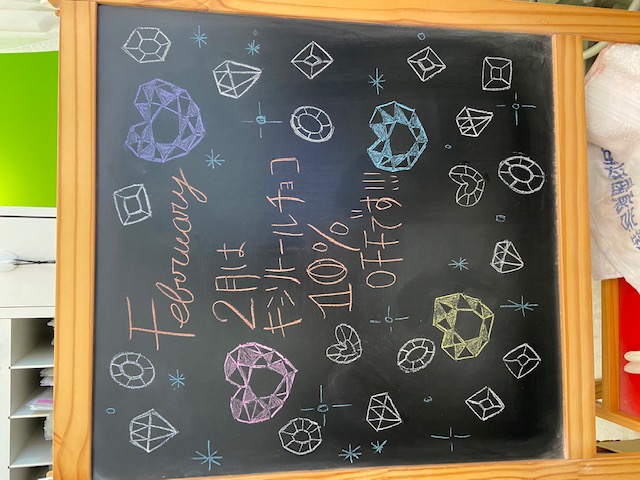 February
2月は
キシリトールチョコ
10%
OFFです!!!